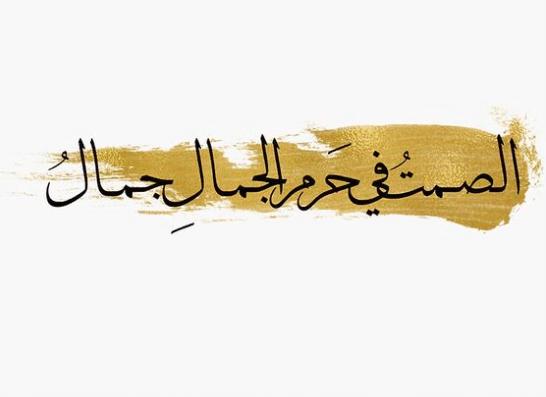 الصمتُ في حَرم الجمالِ جمالُ